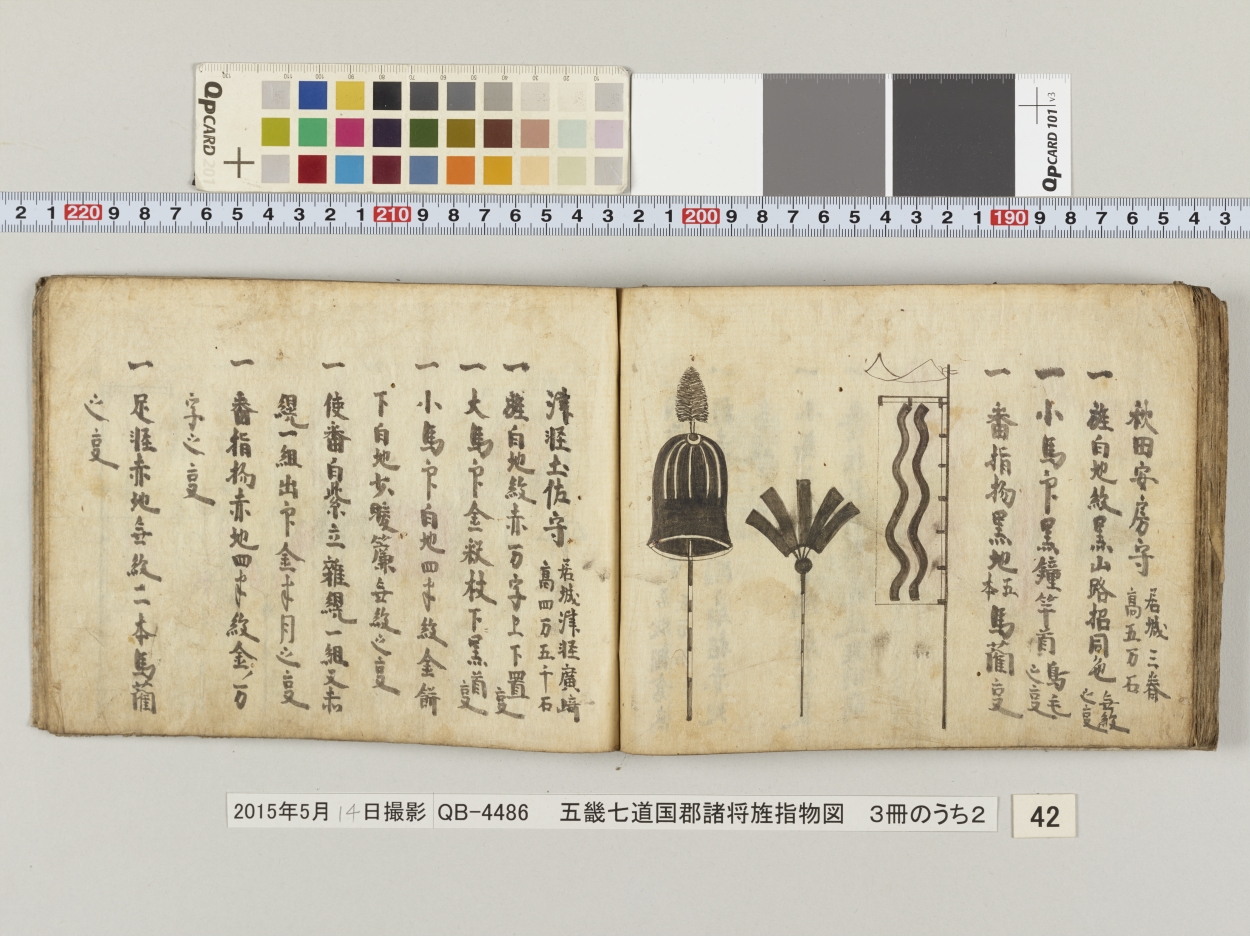 QPCARD 201
QPCARD 101 v3
2 1 220 9 8 7 6 5 4 3 2 1 210 9 8 7 6 5 4 3 2 1 200 9 8 7 6 5 4 3 2 1 190 9 8 7 6 5 4 3
秋田安房守 居城三春 高五万石
一 旌白地紋黒山路招同色 無紋之㕝
一 小馬印黒鐘竿首鳥毛之㕝
一 番指物黒地五本馬藺㕝
津軽土佐守 居城津軽廣崎 高四万五千石
一 旌白地紋赤万字上下置㕝
一 大馬印金
杖下黒首㕝
一 小馬印白地四半紋金餅
下白地
簾無紋之㕝
一 使番白紫立雜
一組又赤
一組出印金半月之㕝
一 番指物赤地四半紋金ノ万
字之㕝
一 足軽赤地無紋二本馬藺
之㕝
2015年5月14日撮影 QB-4486 五畿七道国郡諸将旌指物図 3冊のうち2
42